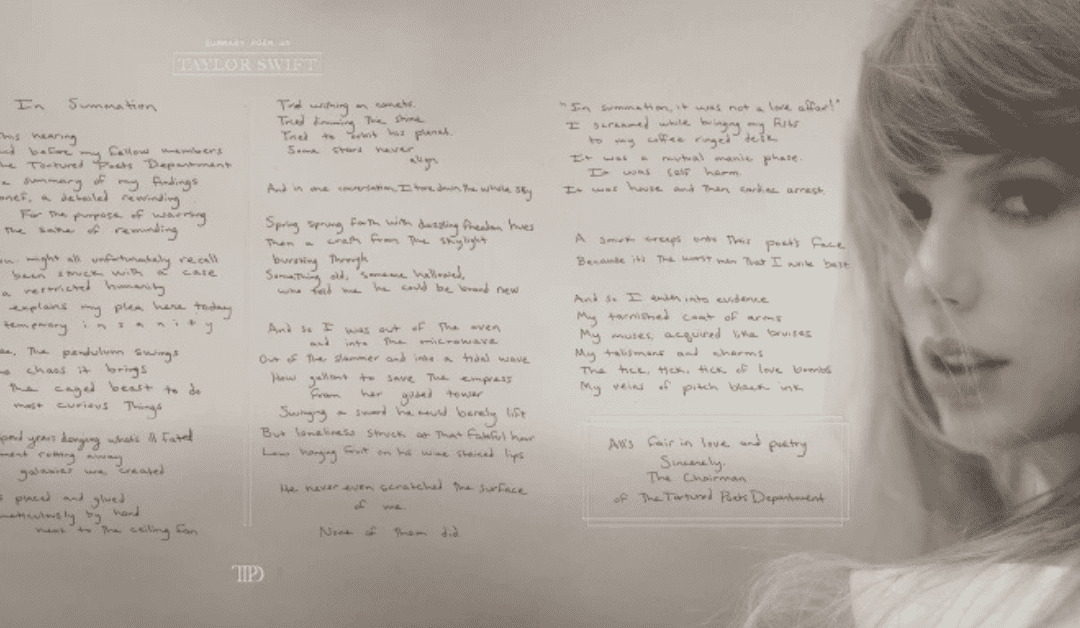 SUMMARY POEM BY
TAYLOR SWIFT
In Summation
this hearing
before my fellow members
Tortured Poets Department
a summary of my findings
a detailed rewinding
For the purpose of warning
the sake of reminding
might all unfortunately recall
been struck with a case
a restricted humanity
explains my plea here today
temporary i n s a n i t y
The pendulum swings
chaos it brings
The caged beast to do
most curious Things
years denying what's ill fated
rotting away
galaxies we created
placed and glued
meticulously by hand
next to the ceiling fan
Tried wishing on comets.
Tried dimming the shine
Tried to orbit his planet.
Some stars never
align
And in one conversation, I tore down the whole sky
Spring sprung forth with dazzling freedom hues
Then a crash from the skylight
bursting through
Something old, someone hallowed,
who told me he could be brand new
And so I was out of the oven
and into the microwave
Out of the slammer and into a tidal wave
How gallant to save the empress
from her gilded tower
Swinging a sword he could barely lift
But loneliness struck at that fateful hour
Low hanging fruit on his wine stained lips
He never even scratched the surface
of me.
None of them did.
"In summation, it was not a love affair!"
I screamed while bringing my fists
to my coffee ringed desk
It was a mutual manic phase.
It was self harm.
It was house and then cardiac arrest.
A smirk creeps onto this poet's face
Because it's the worst men that I write best.
And so I enter into evidence
My tarnished coat of arms
My muses, acquired like bruises
My talismans and charms
The tick, tick, tick of love bombs
My veins of pitch black ink
All's fair in love and poetry
Sincerely,
The Chairman
of The Tortured Poets Department
TTPD